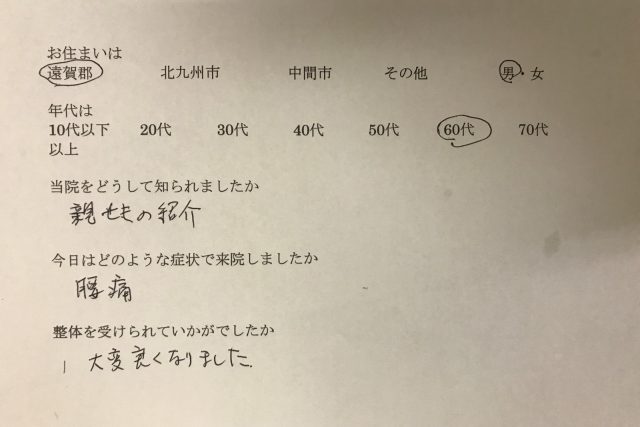 お住まいは
遠賀郡 北九州市 中間市 その他 男・女
年代は
10代以下 20代 30代 40代 50代 60代 70代
以上
当院をどうして知られましたか
親せきの紹介
今日はどのような症状で来院しましたか
腰痛
整体を受けられていかがでしたか
大変良くなりました。